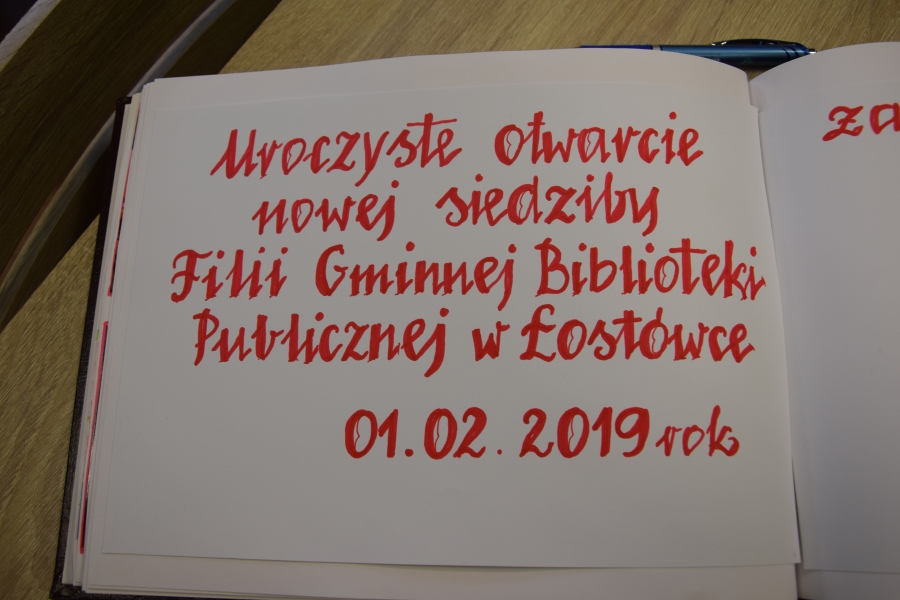 Uroczyste otwarcie
nowej siedziby
Filii Gminnej Biblioteki
Publicznej w Łostówce
01.02.2019 rok
za